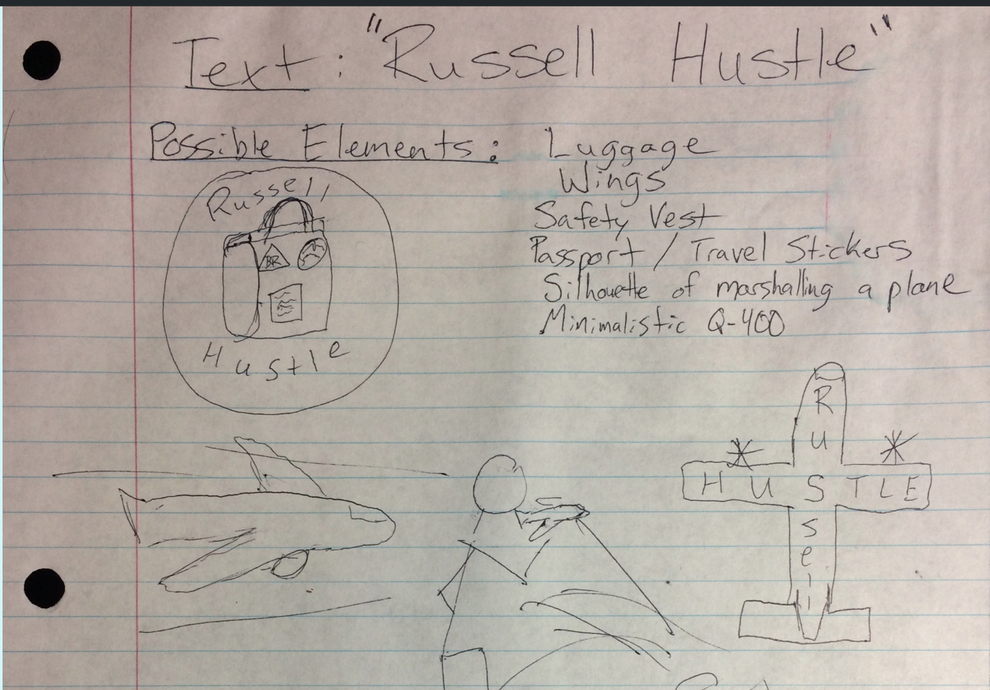 Text: "Russell Hustle"
Possible Elements: Luggage
Wings
Safety Vest
Passport / Travel Stickers
Silhouette of marshalling a plane
Minimalistic Q-400
Russell
BR
Hustle
R
u
HUSTLE
s
e
l
l